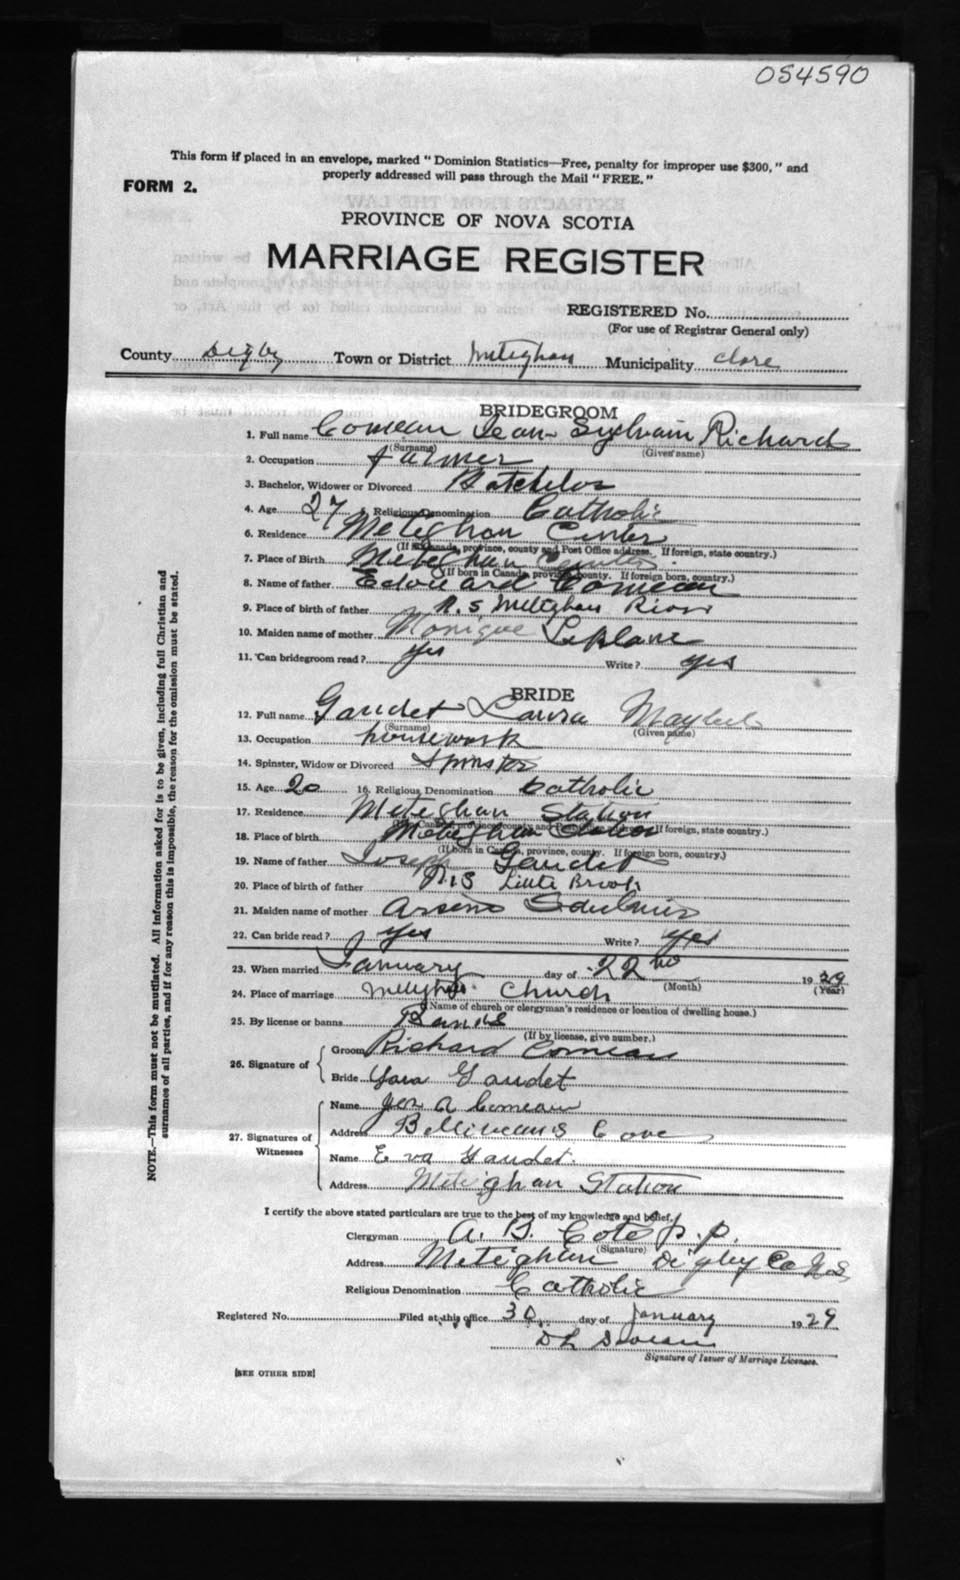 054590
This form if placed in an envelope, marked "Dominion Statistics—Free, penalty for improper use $300," and
properly addressed will pass through the Mail "FREE."
FORM 2.
PROVINCE OF NOVA SCOTIA
MARRIAGE REGISTER
REGISTERED No.
(For use of Registrar General only)
County Digby Town or District Meteghan Municipality Clare
BRIDEGROOM
1. Full name Comeau Jean Sylvain Richard
(Surname) (Given name)
2. Occupation farmer
3. Bachelor, Widower or Divorced Batchelor
4. Age 27 5. Religious Denomination Catholic
6. Residence Meteghan Center
(If in Canada, province, county and Post Office address. If foreign, state country.)
7. Place of Birth Meteghan Center
(If born in Canada, province, county. If foreign born, country.)
8. Name of father Edouard Comeau
9. Place of birth of father N.S Meteghan River
10. Maiden name of mother Monique LeBlanc
11. Can bridegroom read? yes Write? yes
BRIDE
12. Full name Gaudet Laura Maybel
(Surname) (Given name)
13. Occupation housework
14. Spinster, Widow or Divorced Spinster
15. Age 20 16. Religious Denomination Catholic
17. Residence Meteghan Station
(If in Canada, province, county and Post Office address. If foreign, state country.)
18. Place of birth Meteghan Station
(If born in Canada, province, county. If foreign born, country.)
19. Name of father Joseph Gaudet
20. Place of birth of father N.S Little Brook
21. Maiden name of mother Arsene Saulnier
22. Can bride read? yes Write? yes
23. When married January day of 22nd 1929
(Month) (Year)
24. Place of marriage Meteghan Church
(Name of church or clergyman's residence or location of dwelling house.)
25. By license or banns Banns
(If by license, give number.)
26. Signature of Groom Richard Comeau
Bride Lora Gaudet
27. Signatures of Witnesses
Name Jos A Comeau
Address Belliveaus Cove
Name Eva Gaudet.
Address Meteghan Station
I certify the above stated particulars are true to the best of my knowledge and belief.
Clergyman A. B. Cote p.p.
(Signature)
Address Meteghan Digby Co N.S
Religious Denomination Catholic
Registered No. Filed at this office 30 day of January 1929
D L
Signature of Issuer of Marriage Licenses.
[SEE OTHER SIDE]
NOTE.—This form must not be mutilated. All information asked for is to be given, including full Christian and
surnames of all parties, and if for any reason this is impossible, the reason for the omission must be stated.